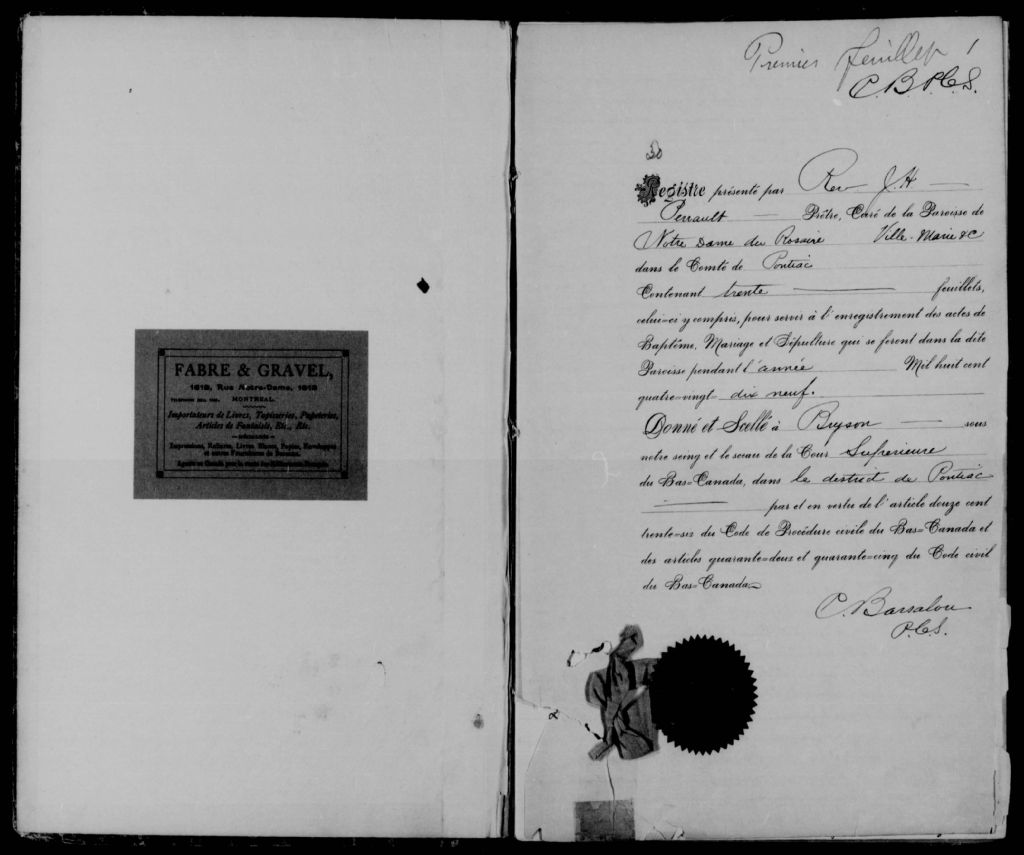 FABRE & GRAVEL,
1618, Rue Notre-Dame, 1618
MONTREAL.
Importateurs de Livres, Tapisseries, Papeteries,
Articles de Fantaisie, Etc., Etc.
Impressions, Reliures, Livres Blancs, Papier, Enveloppes
et autres Fournitures de Bureaux.
Premier feuillet 1
C. B. P.C.S.
Registre présenté par Rev J. H
Perrault Prêtre, Curé de la Paroisse de
Notre Dame du Rosaire Ville-Marie &c
dans le Comté de Pontiac
Contenant trente feuillets,
celui-ci y compris, pour servir à l'enregistrement des actes de
Baptême, Mariage et Sépulture qui se feront dans la dite
Paroisse pendant l'année Mil huit cent
quatre-vingt dix neuf.
Donné et Scellé à Bryson sous
notre seing et le sceau de la Cour Supérieure
du Bas-Canada, dans le district de Pontiac
par et en vertu de l'article douze cent
trente-six du Code de Procédure civile du Bas-Canada et
des articles quarante-deux et quarante-cinq du Code civil
du Bas-Canada.
C. Barsalou
P.C.S.